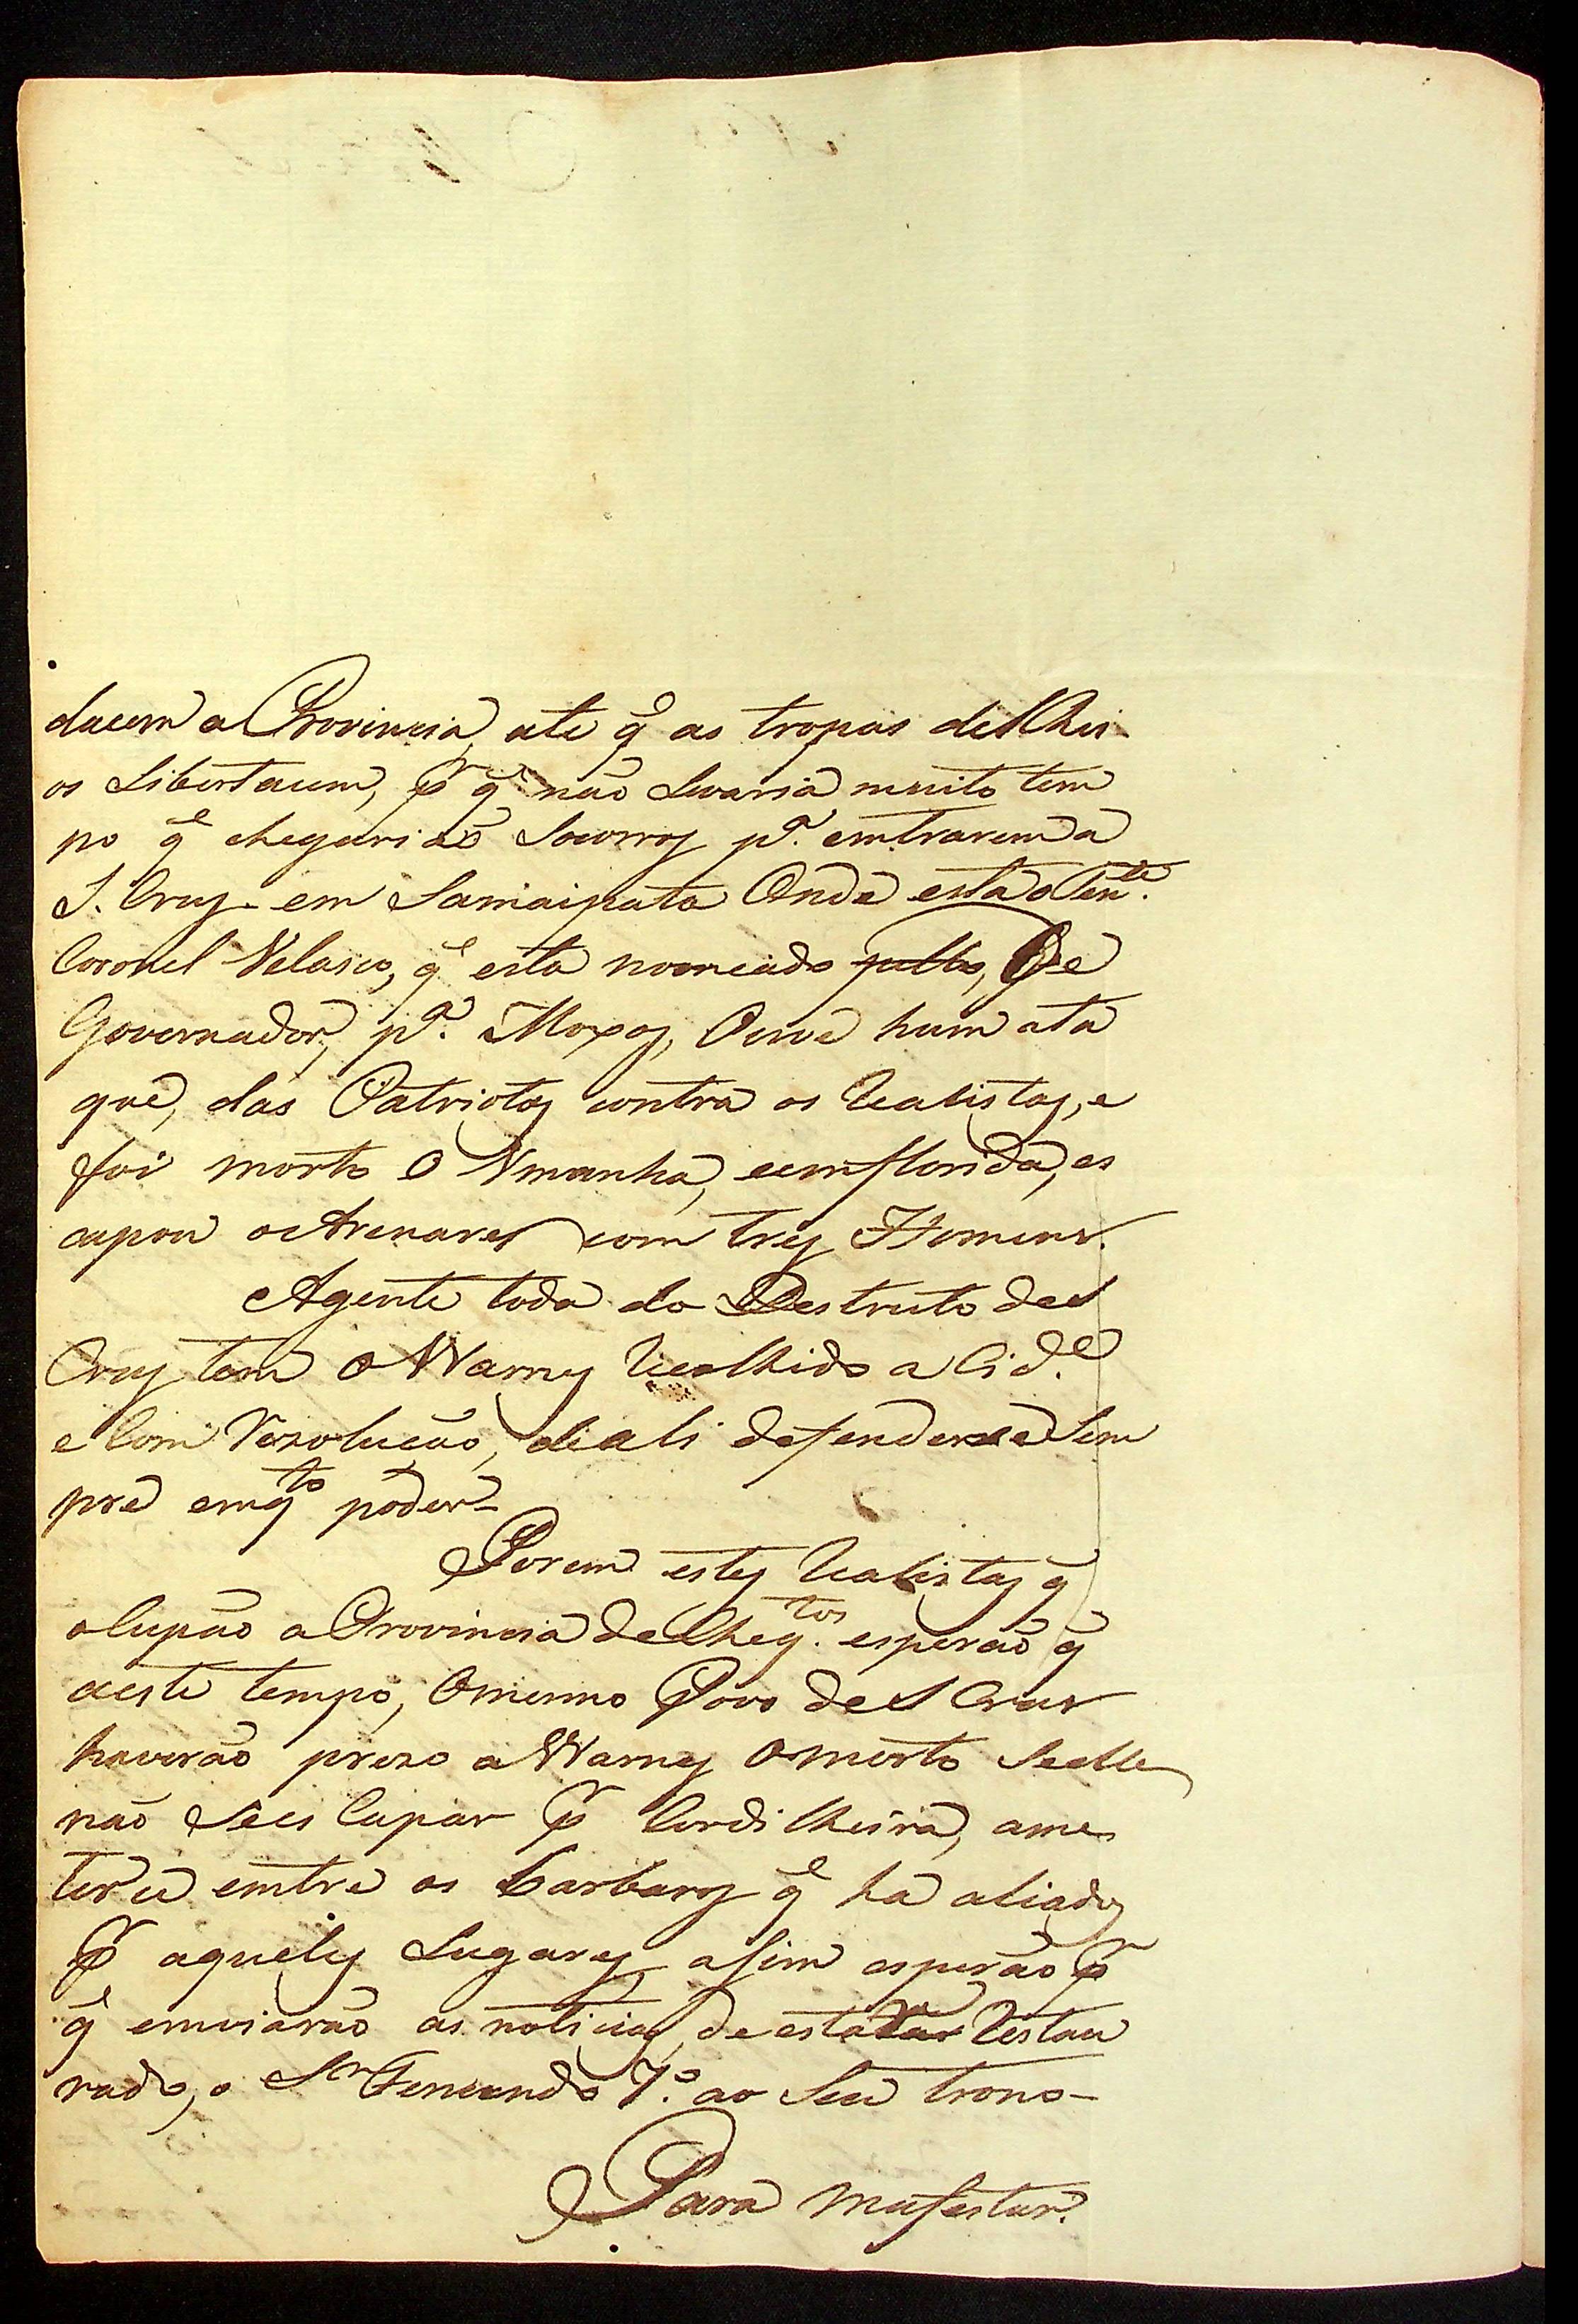 dacem a Provincia, ate q̃ as tropas delhei
os Libertacem, p̃ q̃ não Levaria muito tem
po q̃ chegarião Socorros pª. emtrarem a
S. Crus. em Samaipata Onde está o Tenᵗᵉ.
Coronel Velasco, q̃ esta nomeado pello, De
Governador, pª. Moxos, Ouve hum ata
que, das Patriotas contra os Realistas, e
foi morto O Umanha, e em florida, es
capou o Arenares com tres Homens.
Agente toda do Destruto de S
Crus tem o Warnes Recolhido a Cidᵉ.
e Com Rezolução, de ali defenderse Sem
pre emqᵗᵒ poder-
Porem estes Realistas q̃
oCupão a Provincia de Cheqᵗᵒˢ. esperão q̃
aeste tempo, Omesmo Povo de S Crus
haverão prezo a Warnes O morto Seelle
não Sees Capar p̃ Cordilheira, ame
terce emtre os barbaros q̃ ha aliados
p̃ aqueles Lugares, asim esperão p̃
q̃ emviarão as noticias, de estar Restau
rado, o Sʳ Fernando 7.º ao Seu trono-
Para mafestar.